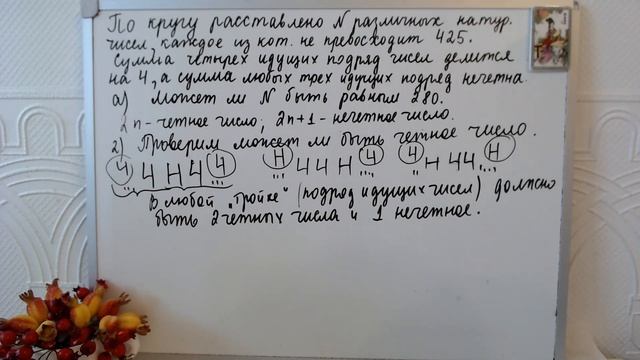 По кругу расставлено N различных натур.
чисел, каждое из кот. не превосходит 425.
Сумма четырех идущих подряд чисел делится
на 4, а сумма любых трех идущих подряд нечетна.
а) может ли N быть равным 280.
2n - четное число; 2n+1 - нечетное число.
2) Проверим может ли быть четное число.
Ч Ч Н Ч Ч Н Ч Ч Н Ч Ч Н Ч Ч Н
В любой "тройке" (подряд идущих чисел) должно
быть 2 четных числа и 1 нечетное.